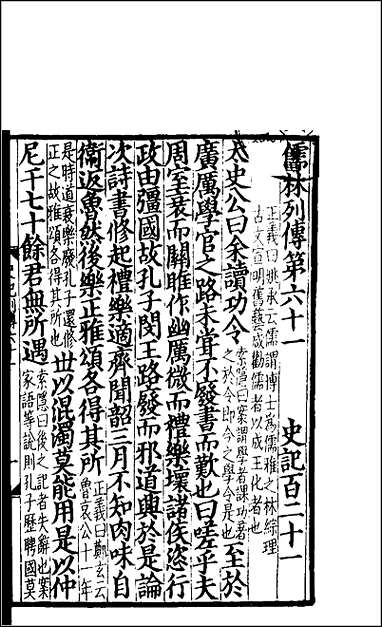 儒林列傳第六十一　史記百二十一
正義曰姚承云儒謂博士爲儒雅之林綜理
古文宣明舊藝咸勸儒者以成王化者也
太史公曰余讀功令索隱曰案謂學者課功著之於令即今之學令是也至於
廣厲學官之路未嘗不廢書而歎也曰嗟乎夫
周室衰而關雎作幽厲微而禮樂壞諸侯恣行
政由彊國故孔子閔王路廢而邪道興於是論
次詩書修起禮樂適齊聞韶三月不知肉味自
衞返魯然後樂正雅頌各得其所正義曰鄭玄云魯哀公十一年
是時道衰樂廢孔子還修正之故雅頌各得其所也世以混濁莫能用是以仲
尼干七十餘君無所遇索隱曰後之記者失辭也案家語等說則孔子歷聘國莫